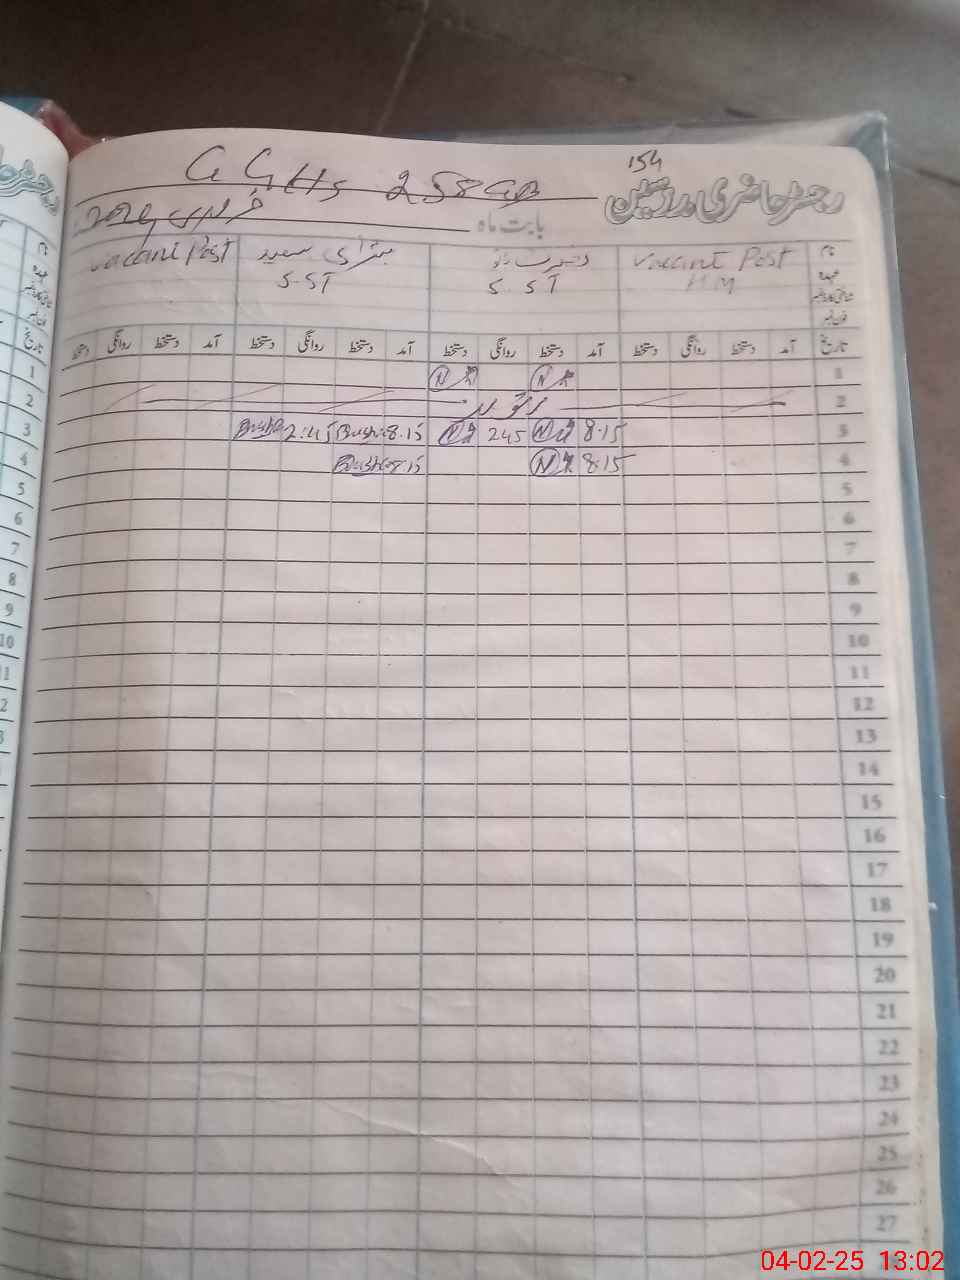 154
رجسٹر حاضری مدرسین
G GHS 258 GB
بابت ماہ فروری
نام Vacant Post S.ST بشرای سعید Vacant Post
عہدہ H M S. ST
شناختی کارڈ نمبر
فون نمبر
تاریخ آمد دستخط روانگی دستخط آمد دستخط روانگی دستخط آمد دستخط روانگی دستخط آمد دستخط روانگی دستخط
1
2 اتوار
3 8.15 245 8.15 2:45
4 8.15 8.15
5
6
7
8
9
10
11
12
13
14
15
16
17
18
19
20
21
22
23
24
25
26
27
04-02-25 13:02